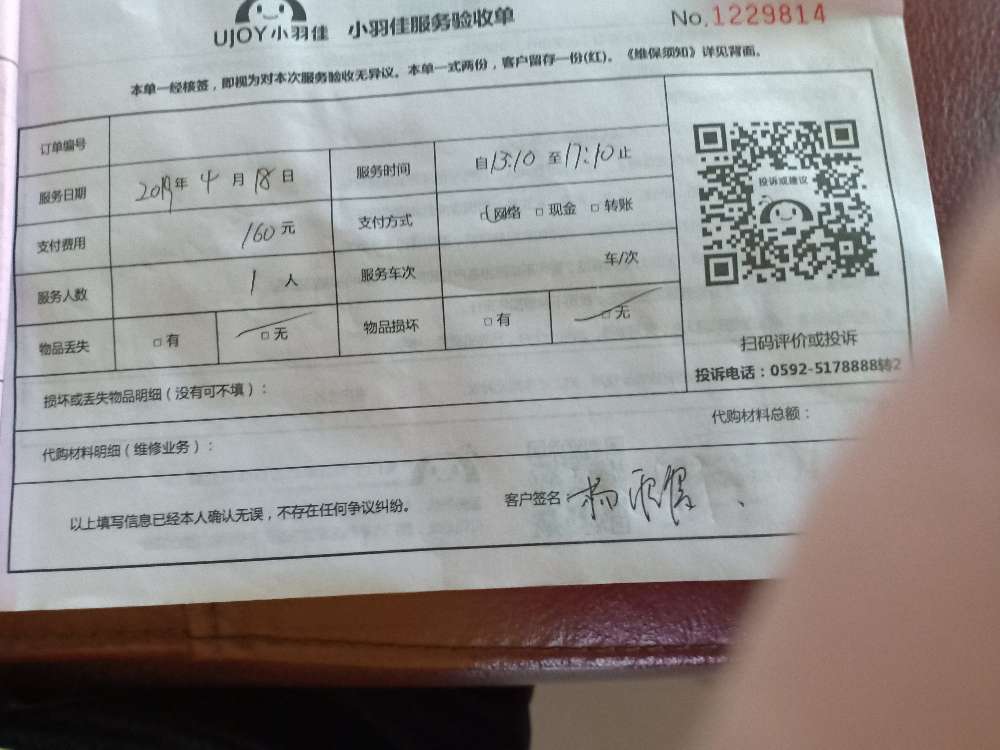 UJOY小羽佳 小羽佳服务验收单 No.1229814
本单一经核签，即视为对本次服务验收无异议。本单一式两份，客户留存一份(红)。《维保须知》详见背面。
订单编号
服务日期 2019年 4 月 18 日 服务时间 自13:10 至17:10止
支付费用 160元 支付方式 网络 □ 现金 □ 转账
服务人数 1 人 服务车次 车/次
物品丢失 □ 有 □ 无 物品损坏 □ 有 □ 无
投诉或建议
扫码评价或投诉
投诉电话：0592-5178888转2
损坏或丢失物品明细（没有可不填）：
代购材料明细（维修业务）： 代购材料总额：
以上填写信息已经本人确认无误，不存在任何争议纠纷。 客户签名 杨